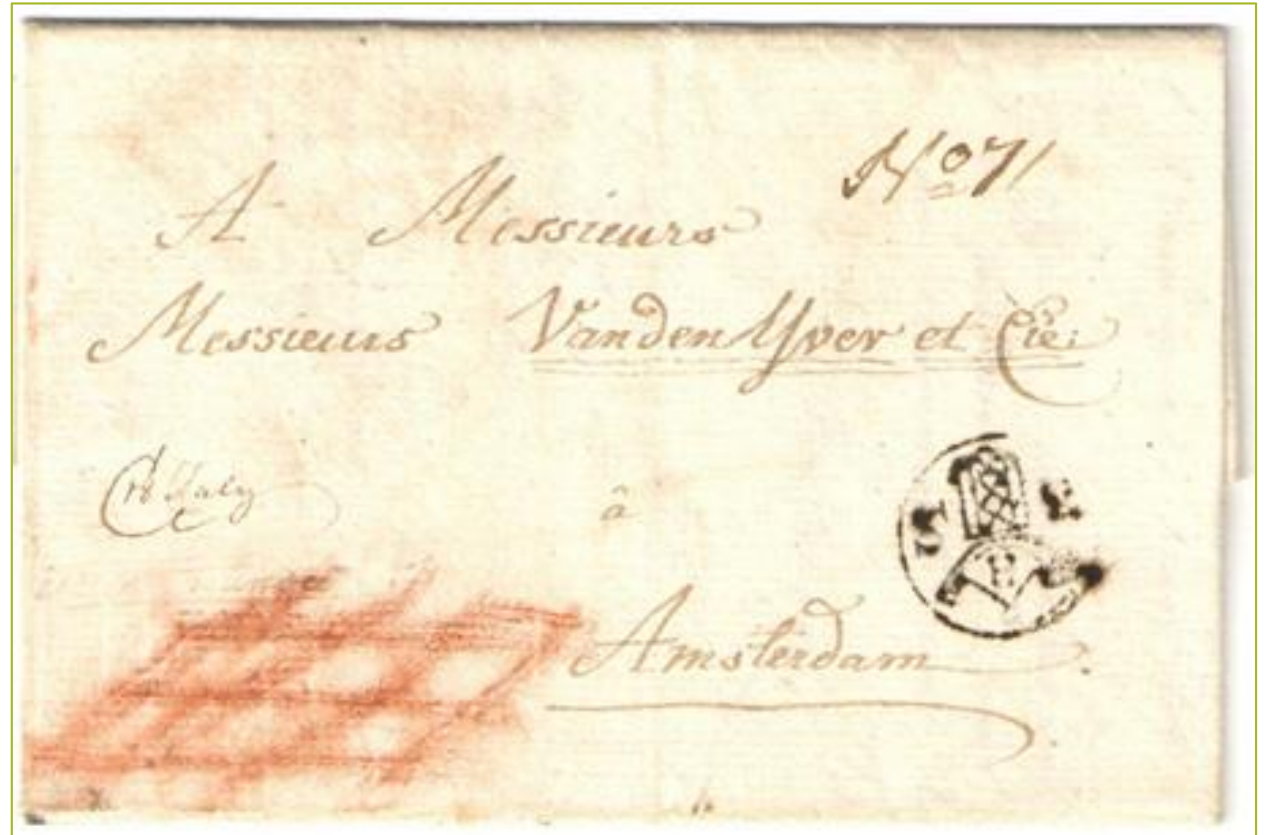 No 71
A Messieurs
Messieurs VandenYver et Cie:
à
Amsterdam